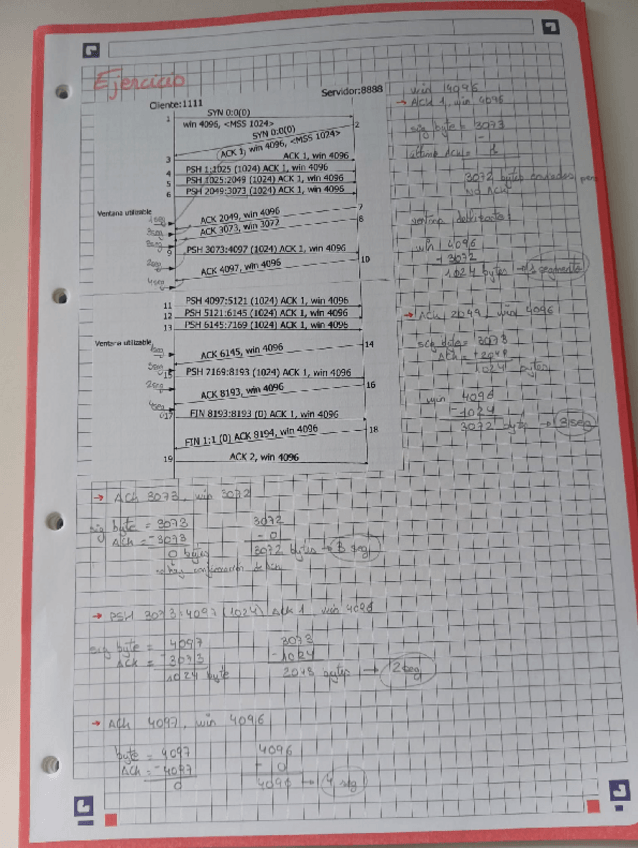 Ejercicio
Cliente:1111
Servidor:8888
SYN 0:0(0)
1
win 4096, <MSS 1024>
2
SYN 0:0(0)
ACK 1, win 4096, <MSS 1024>
3
ACK 1, win 4096
4
PSH 1:1025 (1024) ACK 1, win 4096
5
PSH 1025:2049 (1024) ACK 1, win 4096
6
PSH 2049:3073 (1024) ACK 1, win 4096
Ventana utilizable
7
ACK 2049, win 4096
8
ACK 3073, win 3072
9
PSH 3073:4097 (1024) ACK 1, win 4096
10
ACK 4097, win 4096
11
PSH 4097:5121 (1024) ACK 1, win 4096
12
PSH 5121:6145 (1024) ACK 1, win 4096
13
PSH 6145:7169 (1024) ACK 1, win 4096
Ventana utilizable
14
ACK 6145, win 4096
15
PSH 7169:8193 (1024) ACK 1, win 4096
16
ACK 8193, win 4096
17
FIN 8193:8193 (0) ACK 1, win 4096
18
FIN 1:1 (0) ACK 8194, win 4096
19
ACK 2, win 4096
win 4096
→ ACK 1, win 4096
sig byte = 3073
3072 bytes enviados pero
no ACK
win 4096
- 3072
1024 bytes → 1 segmento
→ ACK 2049, win 4096
sig byte = 3073
ACK = - 2049
1024 bytes
win 4096
- 1024
3072 bytes → 3 seg
→ ACK 3073, win 3072
sig byte = 3073
ACK = - 3073
0 bytes
3072
- 0
3072 bytes → 3 seg
→ PSH 3073:4097 (1024) ACK 1, win 4096
sig byte = 4097
ACK = - 3073
1024 byte
- 1024
bytes → 2 seg
→ ACK 4097, win 4096
byte = 4097
ACK = - 4097
0
4096
- 0
4096 → 4 seg